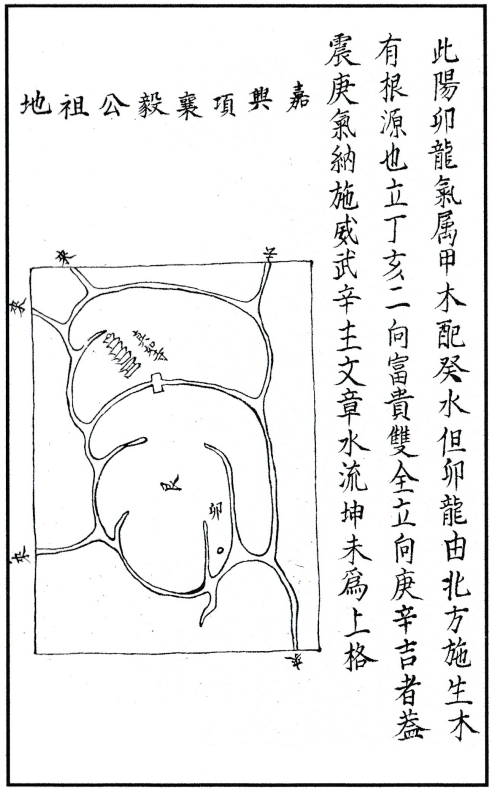 此陽卯龍氣属甲木配癸水但卯龍由北方施生木
有根源也立丁亥二向富貴雙全立向庚辛吉者葢
震庚氣納施威武辛主文章水流坤未爲上格
嘉興項襄毅公祖地
去
来
来
真如寺
艮
卯
来
来